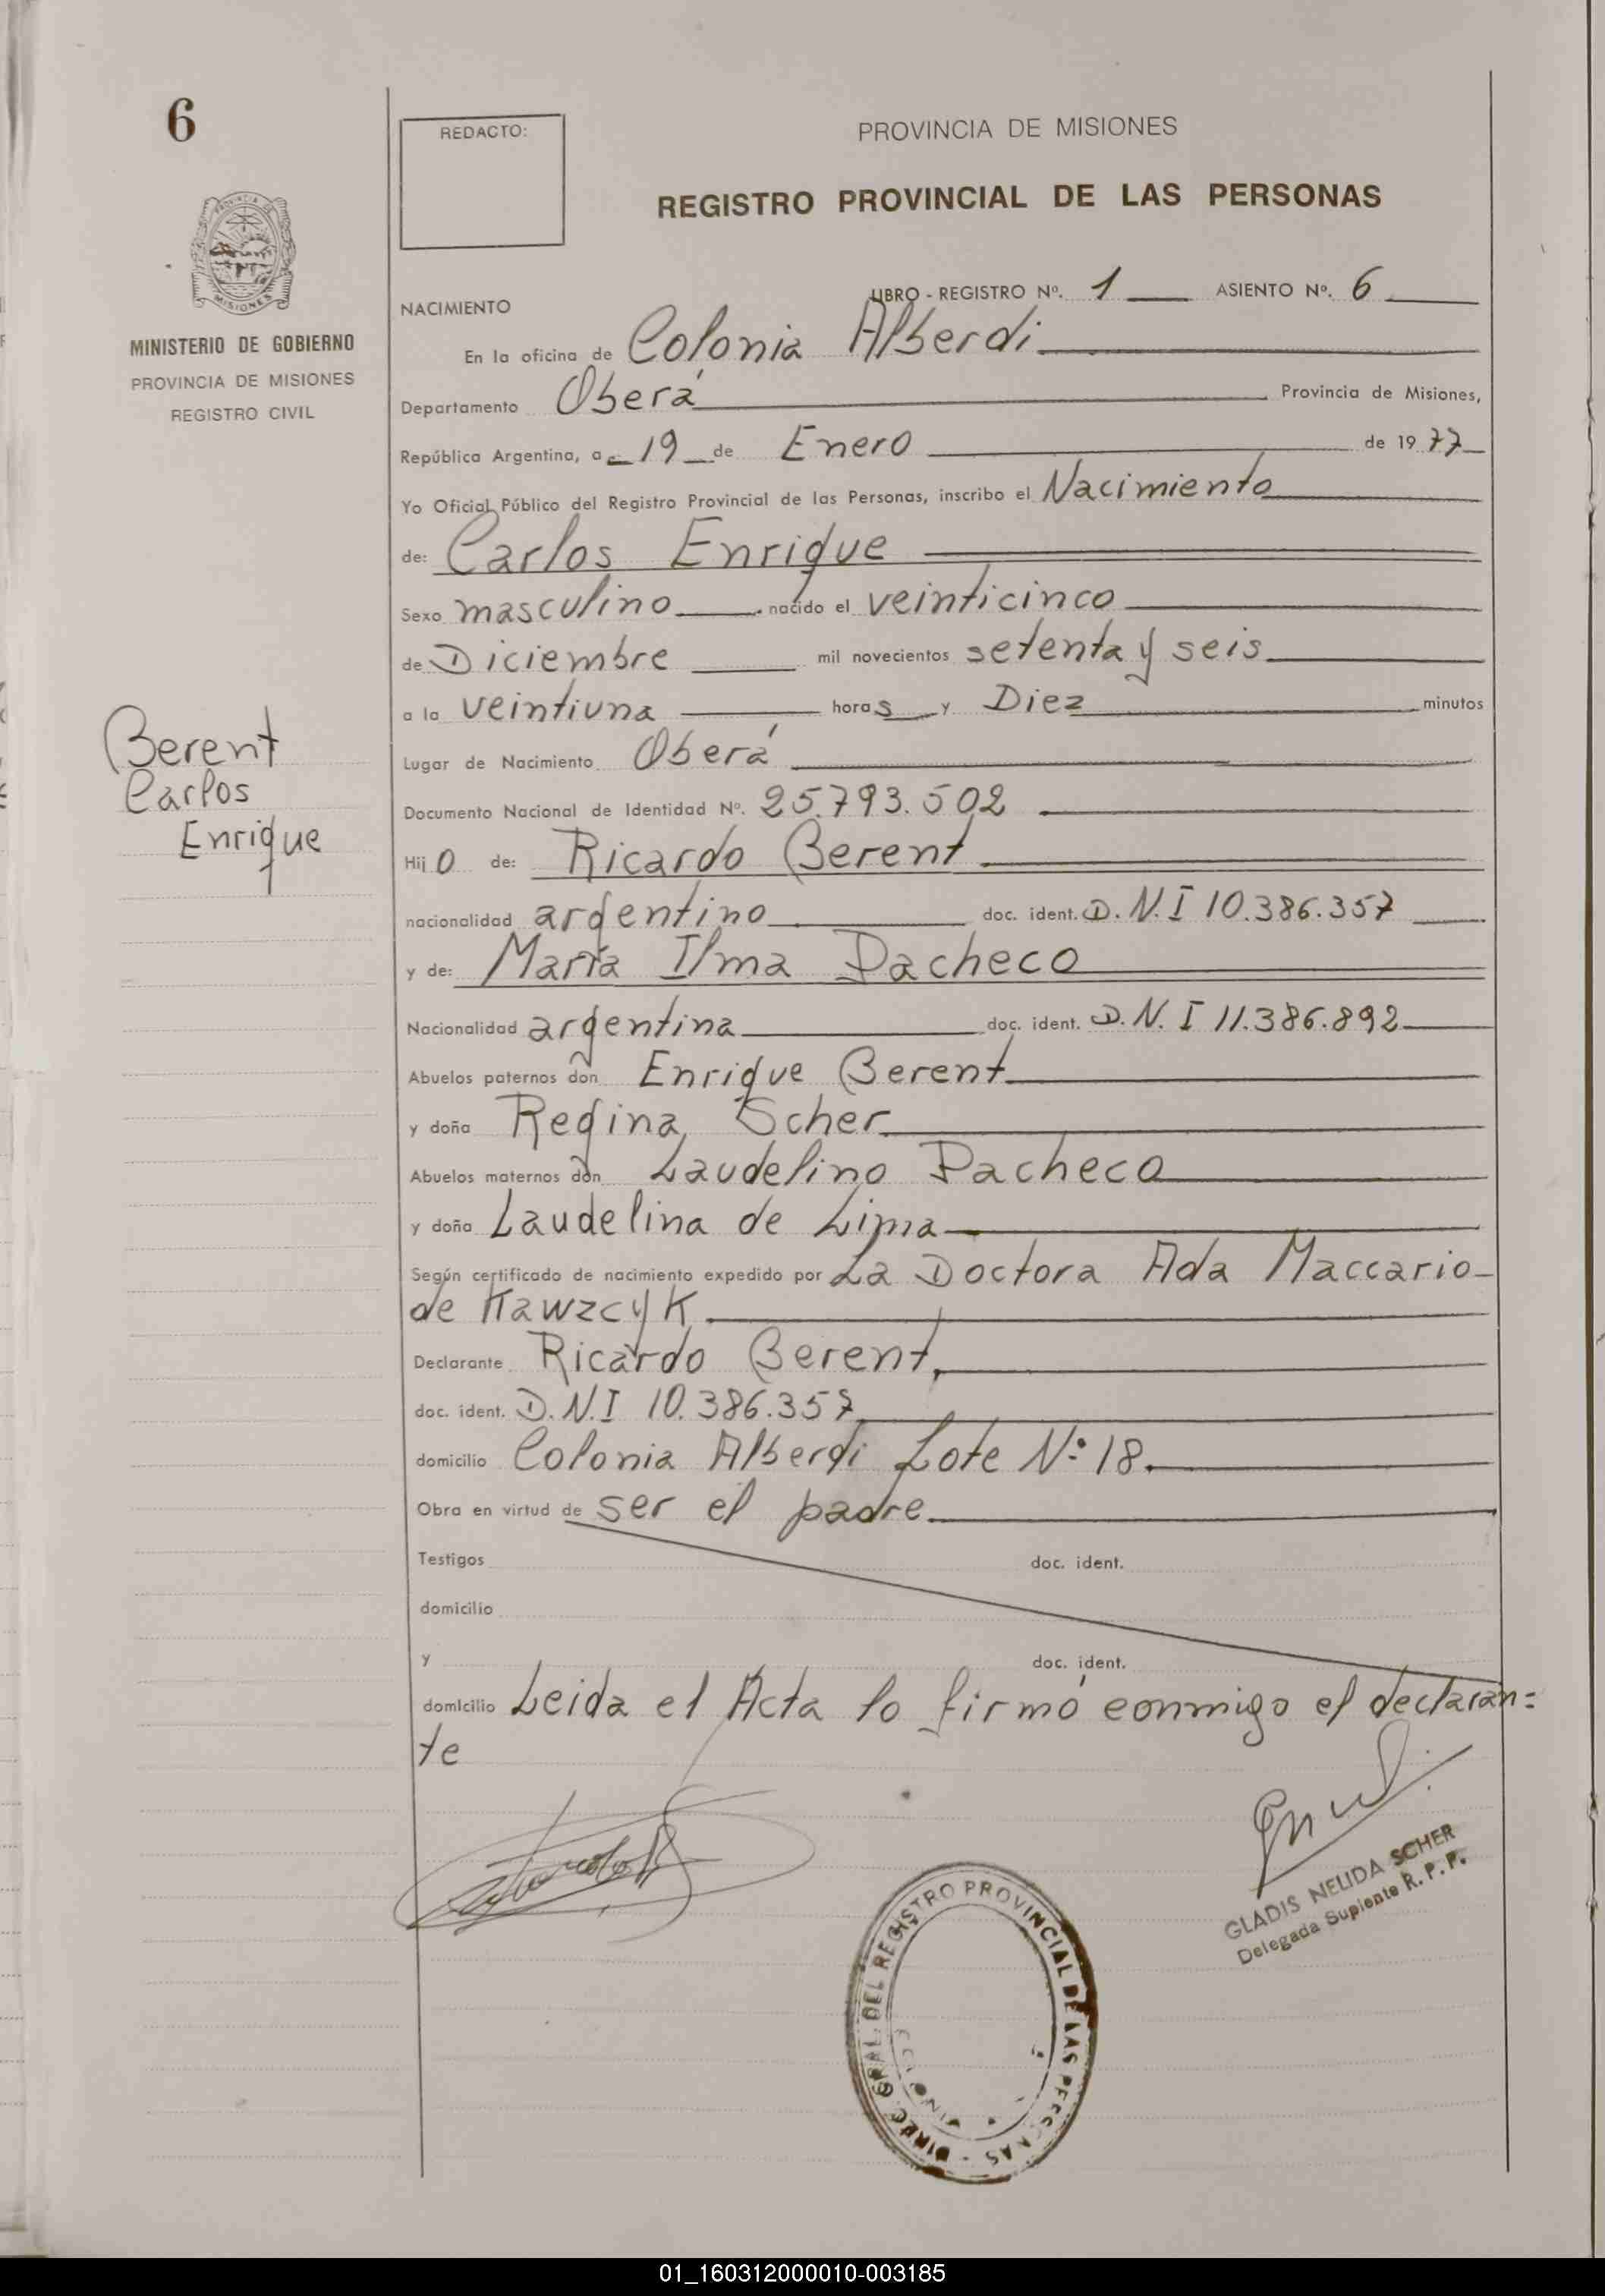 6
REDACTO:
PROVINCIA DE MISIONES
REGISTRO PROVINCIAL DE LAS PERSONAS
MISIONES
MINISTERIO DE GOBIERNO
PROVINCIA DE MISIONES
REGISTRO CIVIL
LIBRO - REGISTRO Nº. 1 ASIENTO Nº. 6
NACIMIENTO
En la oficina de Colonia Alberdi
Departamento Oberá Provincia de Misiones,
República Argentina, a 19 de Enero de 1977
Yo Oficial Público del Registro Provincial de las Personas, inscribo el Nacimiento
de: Carlos Enrique
Sexo masculino nacido el veinticinco
de Diciembre mil novecientos setenta y seis
a la veintiuna horas y Diez minutos
Lugar de Nacimiento Oberá
Berent
Carlos
Enrique
Documento Nacional de Identidad Nº. 25.793.502
Hijo de: Ricardo Berent
nacionalidad argentino doc. ident. D.N.I 10.386.357
y de: María Ilma Pacheco
Nacionalidad argentina doc. ident. D.N.I 11.386.892
Abuelos paternos don Enrique Berent
y doña Regina Scher
Abuelos maternos don Laudelino Pacheco
y doña Laudelina de Lima
Según certificado de nacimiento expedido por La Doctora Ada Maccario
de Kawzcyk.
Declarante Ricardo Berent,
doc. ident. D.N.I 10.386.357
domicilio Colonia Alberdi Lote Nº 18.
Obra en virtud de ser el padre
Testigos doc. ident.
domicilio
y doc. ident.
domicilio Leida el Acta lo firmó conmigo el declaran=
te
GLADIS NELIDA SCHER
Delegada Suplente R.P.P.
DIREC. GRAL. DEL REGISTRO PROVINCIAL DE LAS PERSONAS
01_160312000010-003185